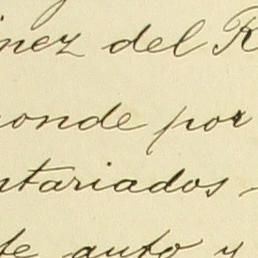 inez del R
onde por
ntariados
te auto y